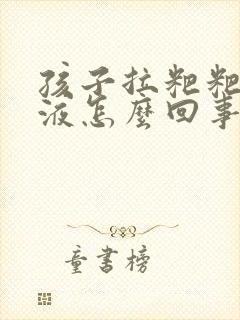 孩子拉粑粑
液怎麼回事
童書榜